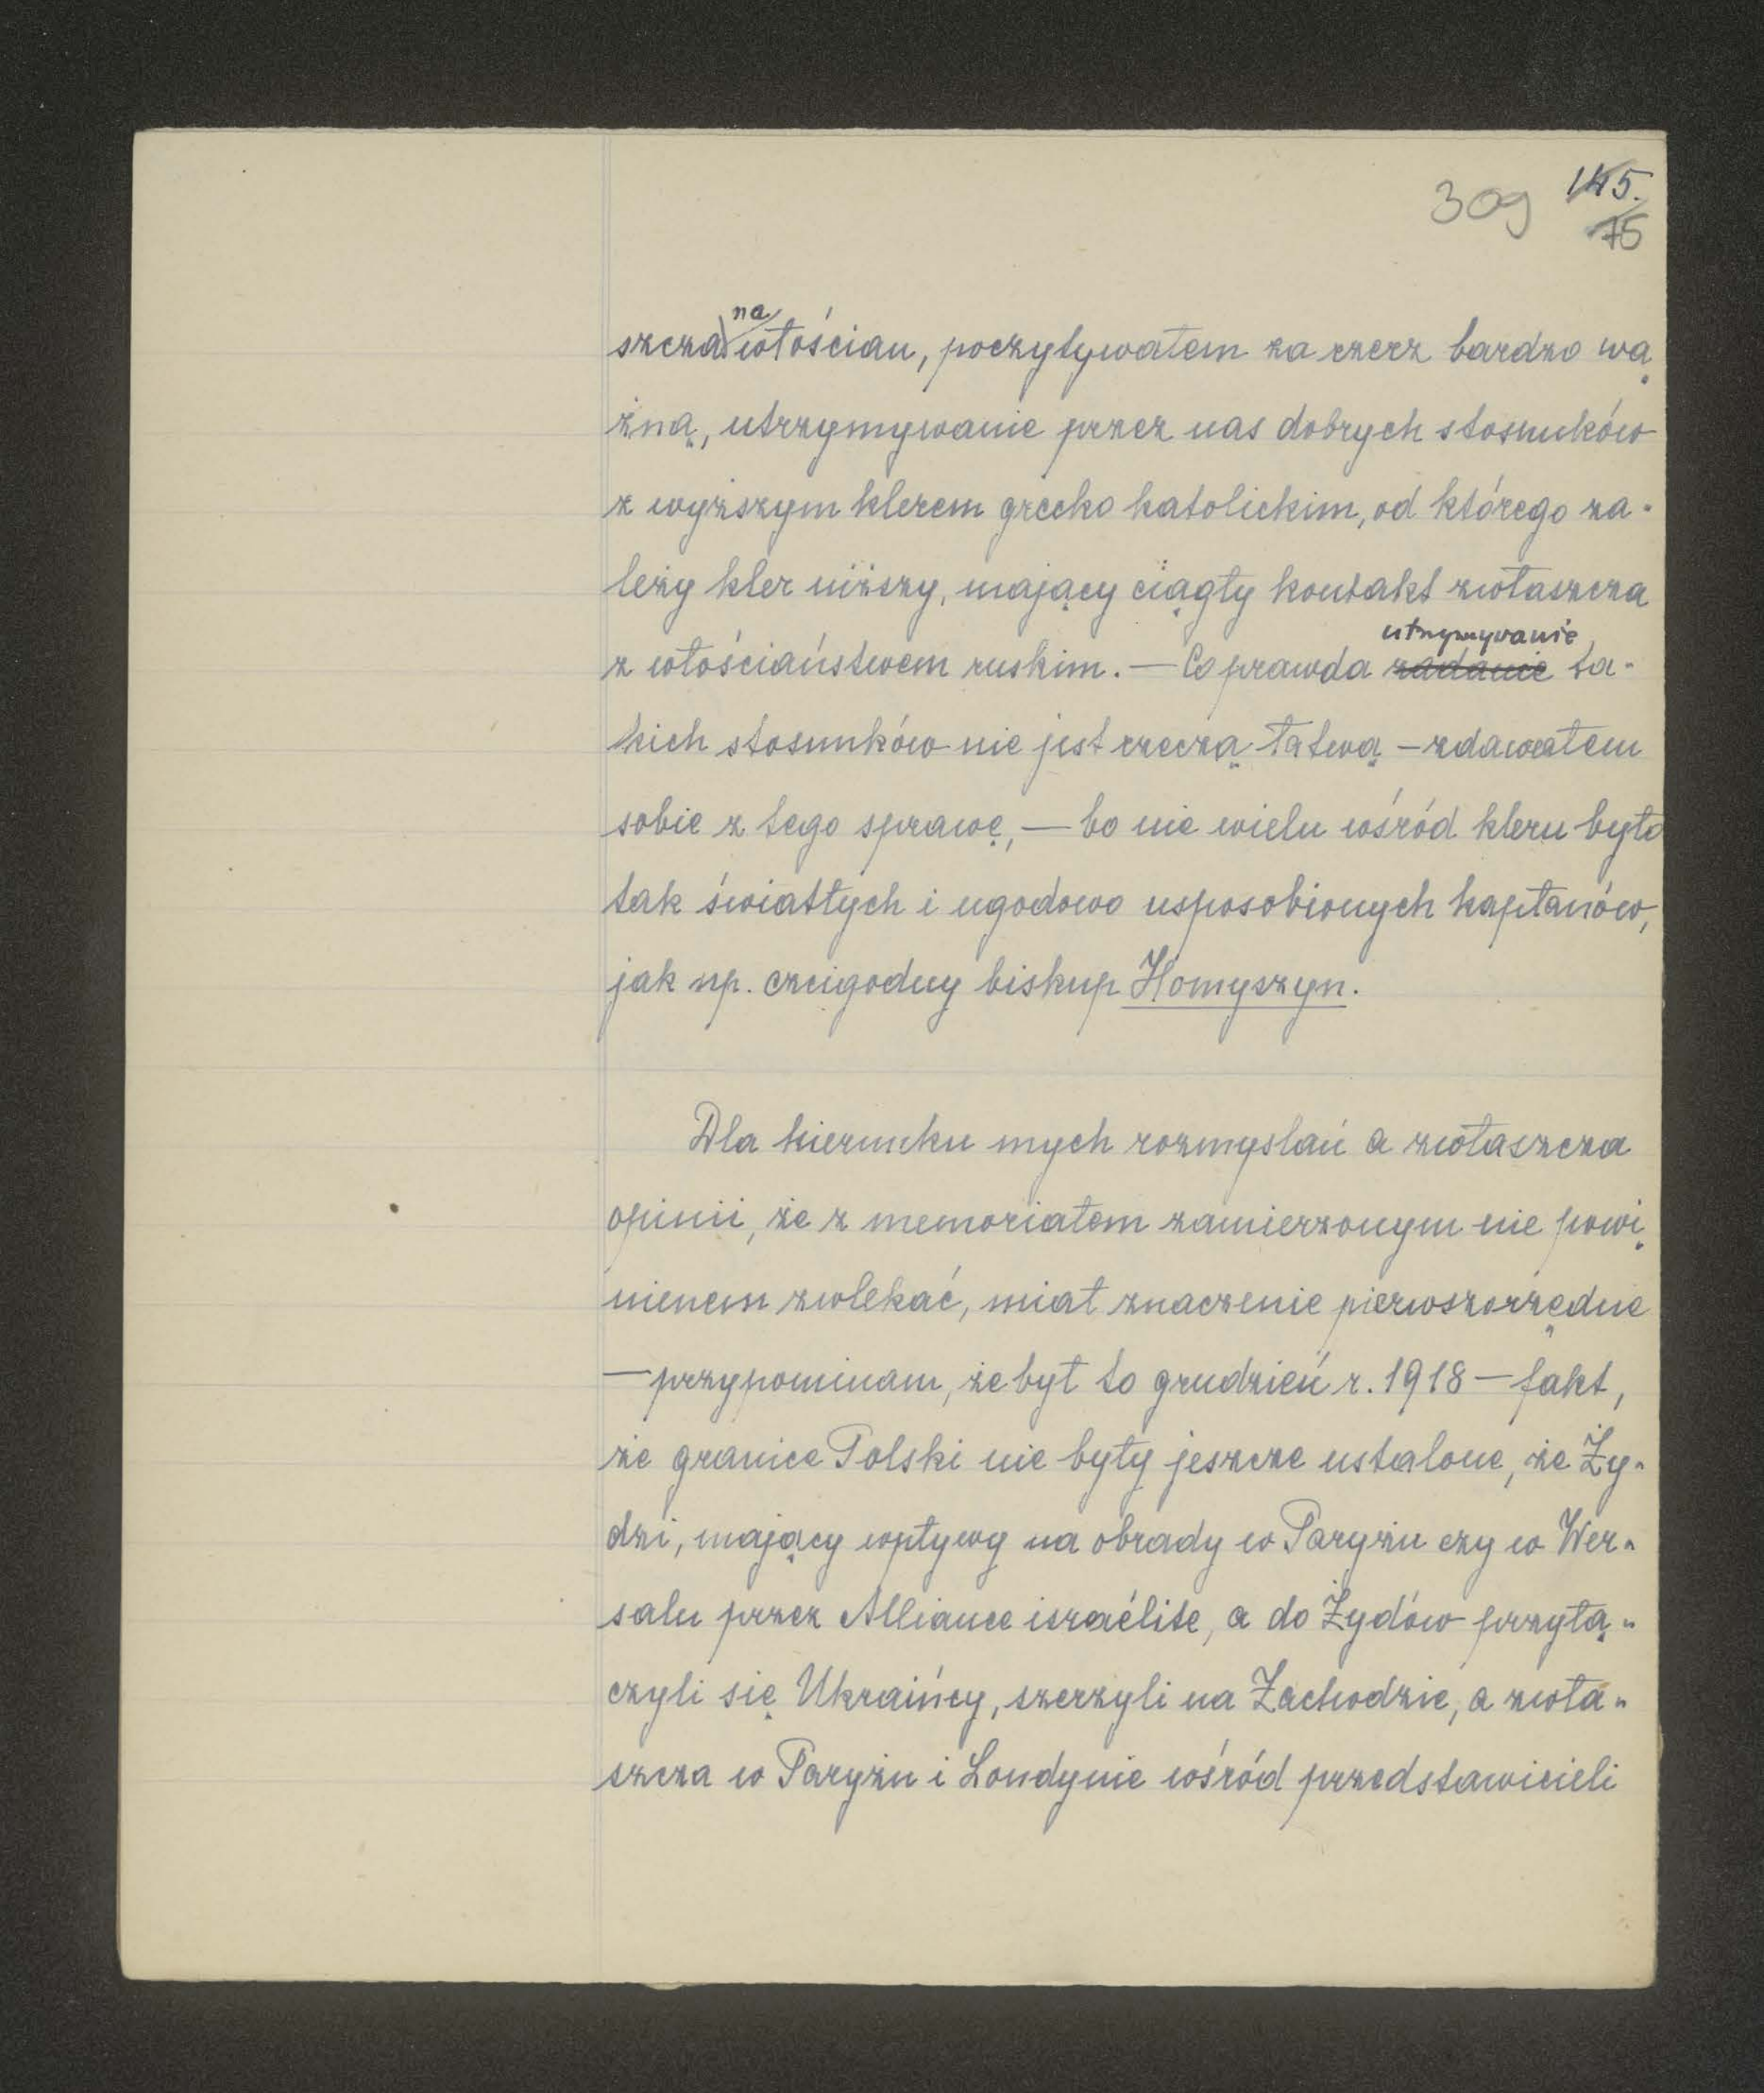 309 145.
75
na
szcza włościan, poczytywałem za rzecz bardzo wa
żną, utrzymywanie przez nas dobrych stosunków
z wyższym klerem grecko katolickim, od którego za-
leży kler niższy, mający ciągły kontakt zwłaszcza
utrzymywanie
z włościaństwem ruskim. — Co prawda zadanie ta-
kich stosunków nie jest rzeczą łatwą – zdawałem
sobie z tego sprawę, — bo nie wielu wśród kleru było
tak światłych i ugodowo usposobionych kapłanów,
jak np. czcigodny biskup Homyszyn.
Dla kierunku mych rozmyslań a zwłaszcza
opinii, że z memoriałem zamierzonym nie powi
nienem zwlekać, miał znaczenie pierwszorzędne
— przypominam, że był to grudzień r. 1918 — fakt,
że granice Polski nie były jeszcze ustalone, że Ży-
dzi, mający wpływy na obrady w Paryżu czy w Wer-
salu przez Alliance israélite, a do Żydów przyłą-
czyli się Ukraińcy, szerzyli na Zachodzie, a zwła-
szcza w Paryżu i Londynie wśród przedstawicieli